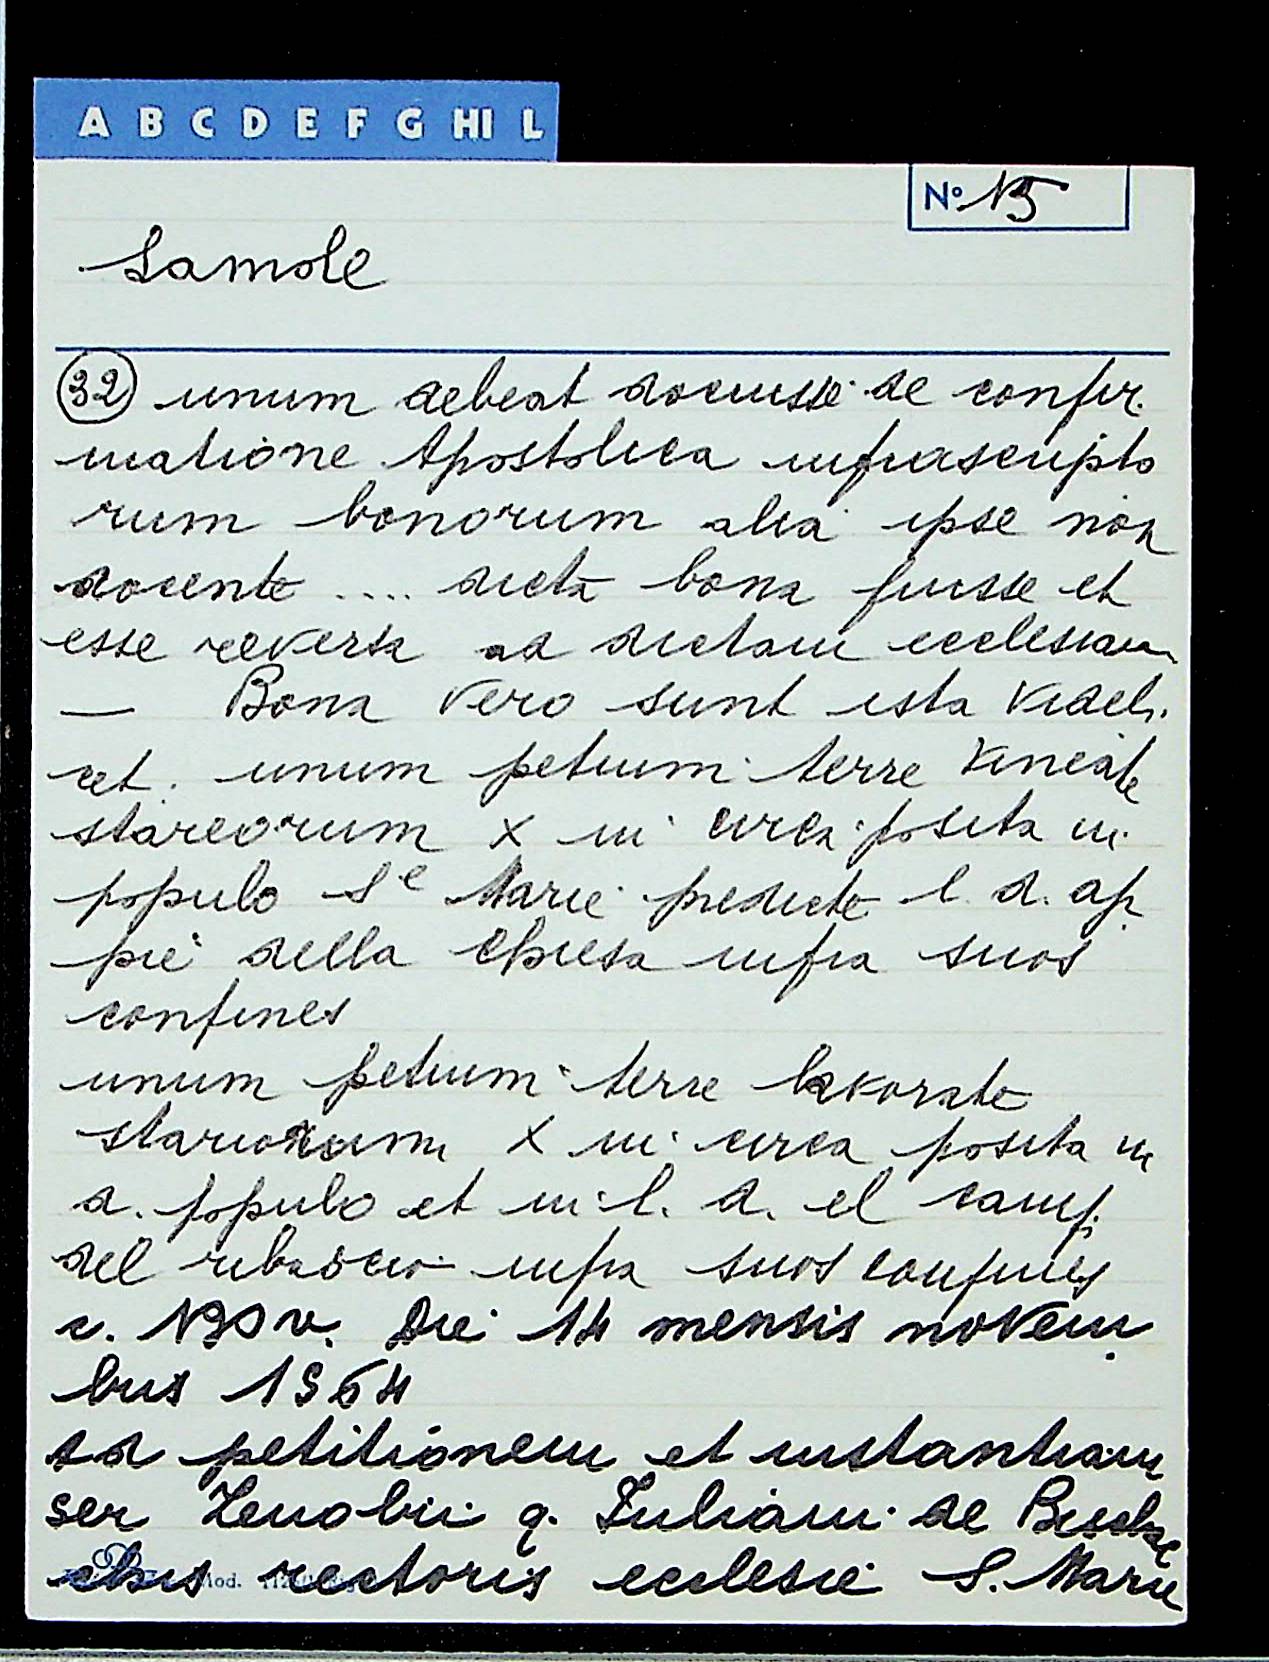 A B C D E F G HI L
Nº 15
Lamole
(32) unum debeat docuisse de confir
matione Apostolica infrascripto
rum bonorum alia ipse non
docente .... dicta bona fuisse et
esse reversa ad dictam ecclesiam
— Bona vero sunt ista videli
cet. unum petium terre vineate
stareorum X in circa posita in
populo Se Marie predicte l. d. ap
piè della Chiesa infra suos
confines
unum petium terre lavorate
stariorum X in circa posita in
d. populo et in l. d. el camp.
del infra suos confines
c. 130 v. Die 14 mensis novem
bris 1564
ad petitionem et instantiam
ser Zenobii q. Iuliani de
rectoris ecclesie S. Marie
Mod.